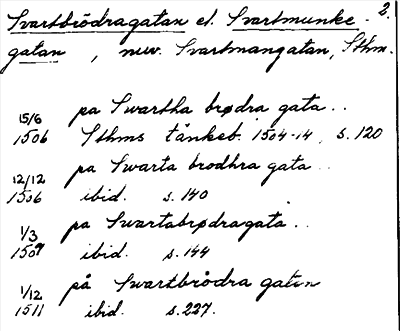 Svartbrödragatan el. Svartmunke- 2.
gatan , nuv. Svartmangatan, Sthm.
15/6 pa Swartha brødra gata ..
1506 Sthms tänkeb. 1504-14, s. 120
12/12 pa Swarta brodhra gata ..
1506 ibid. s. 140
1/3 pa Swartabrødragata ..
1507 ibid. s. 144
1/12 på Swartbrödra gatan
1511 ibid. s. 227.